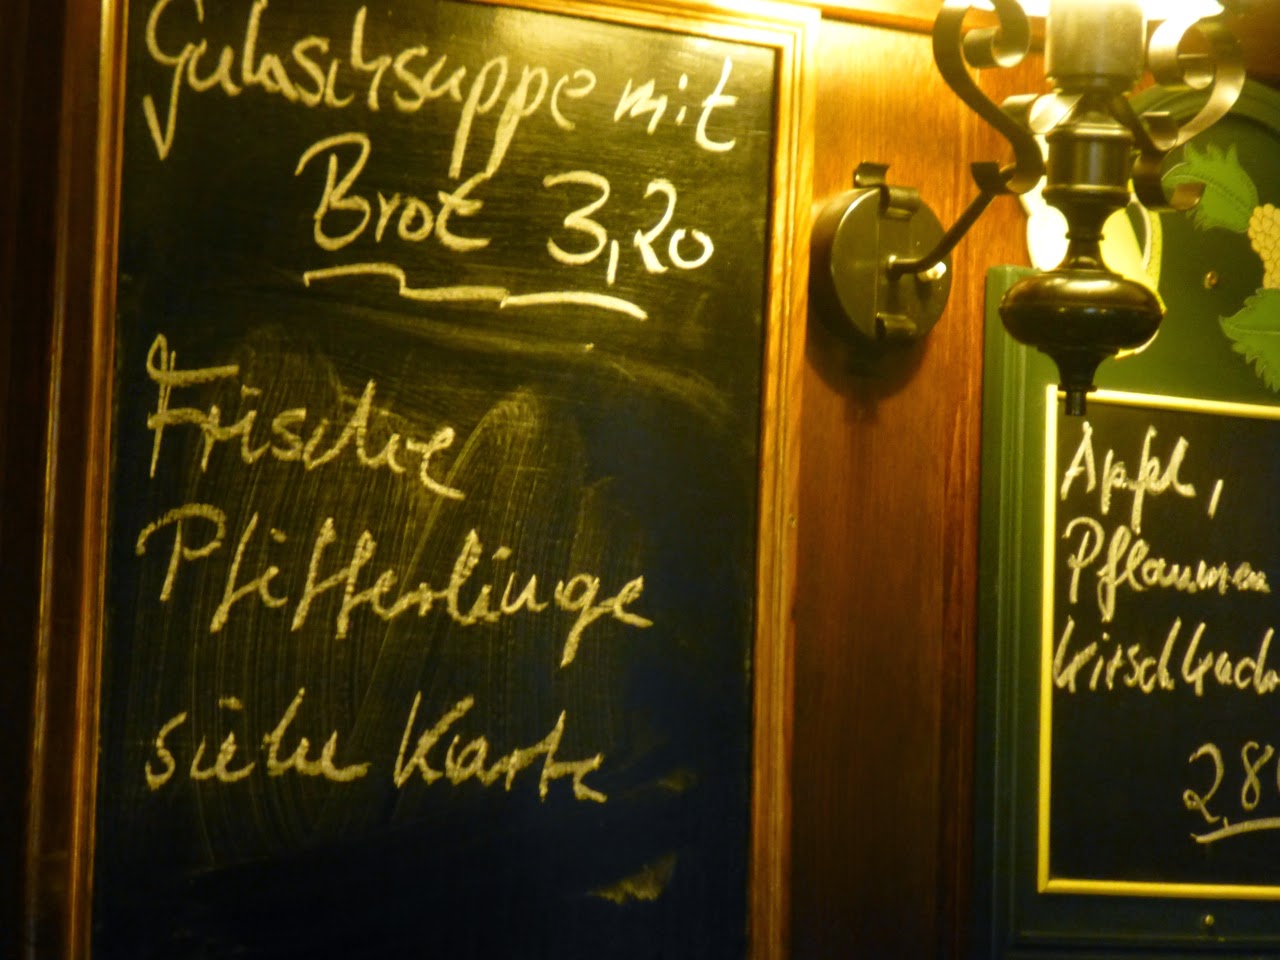 Gulaschsuppe mit
Brot 3,20
Frische
Pfifferlinge
siehe Karte
Apfel,
Pflaumen
Kirschkuch
2,80